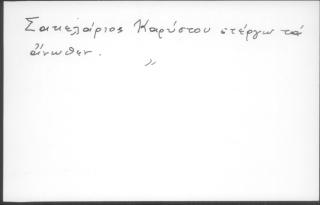 Σακελάριος Καρύστου στέργω τά
ἄνωθεν.
〃